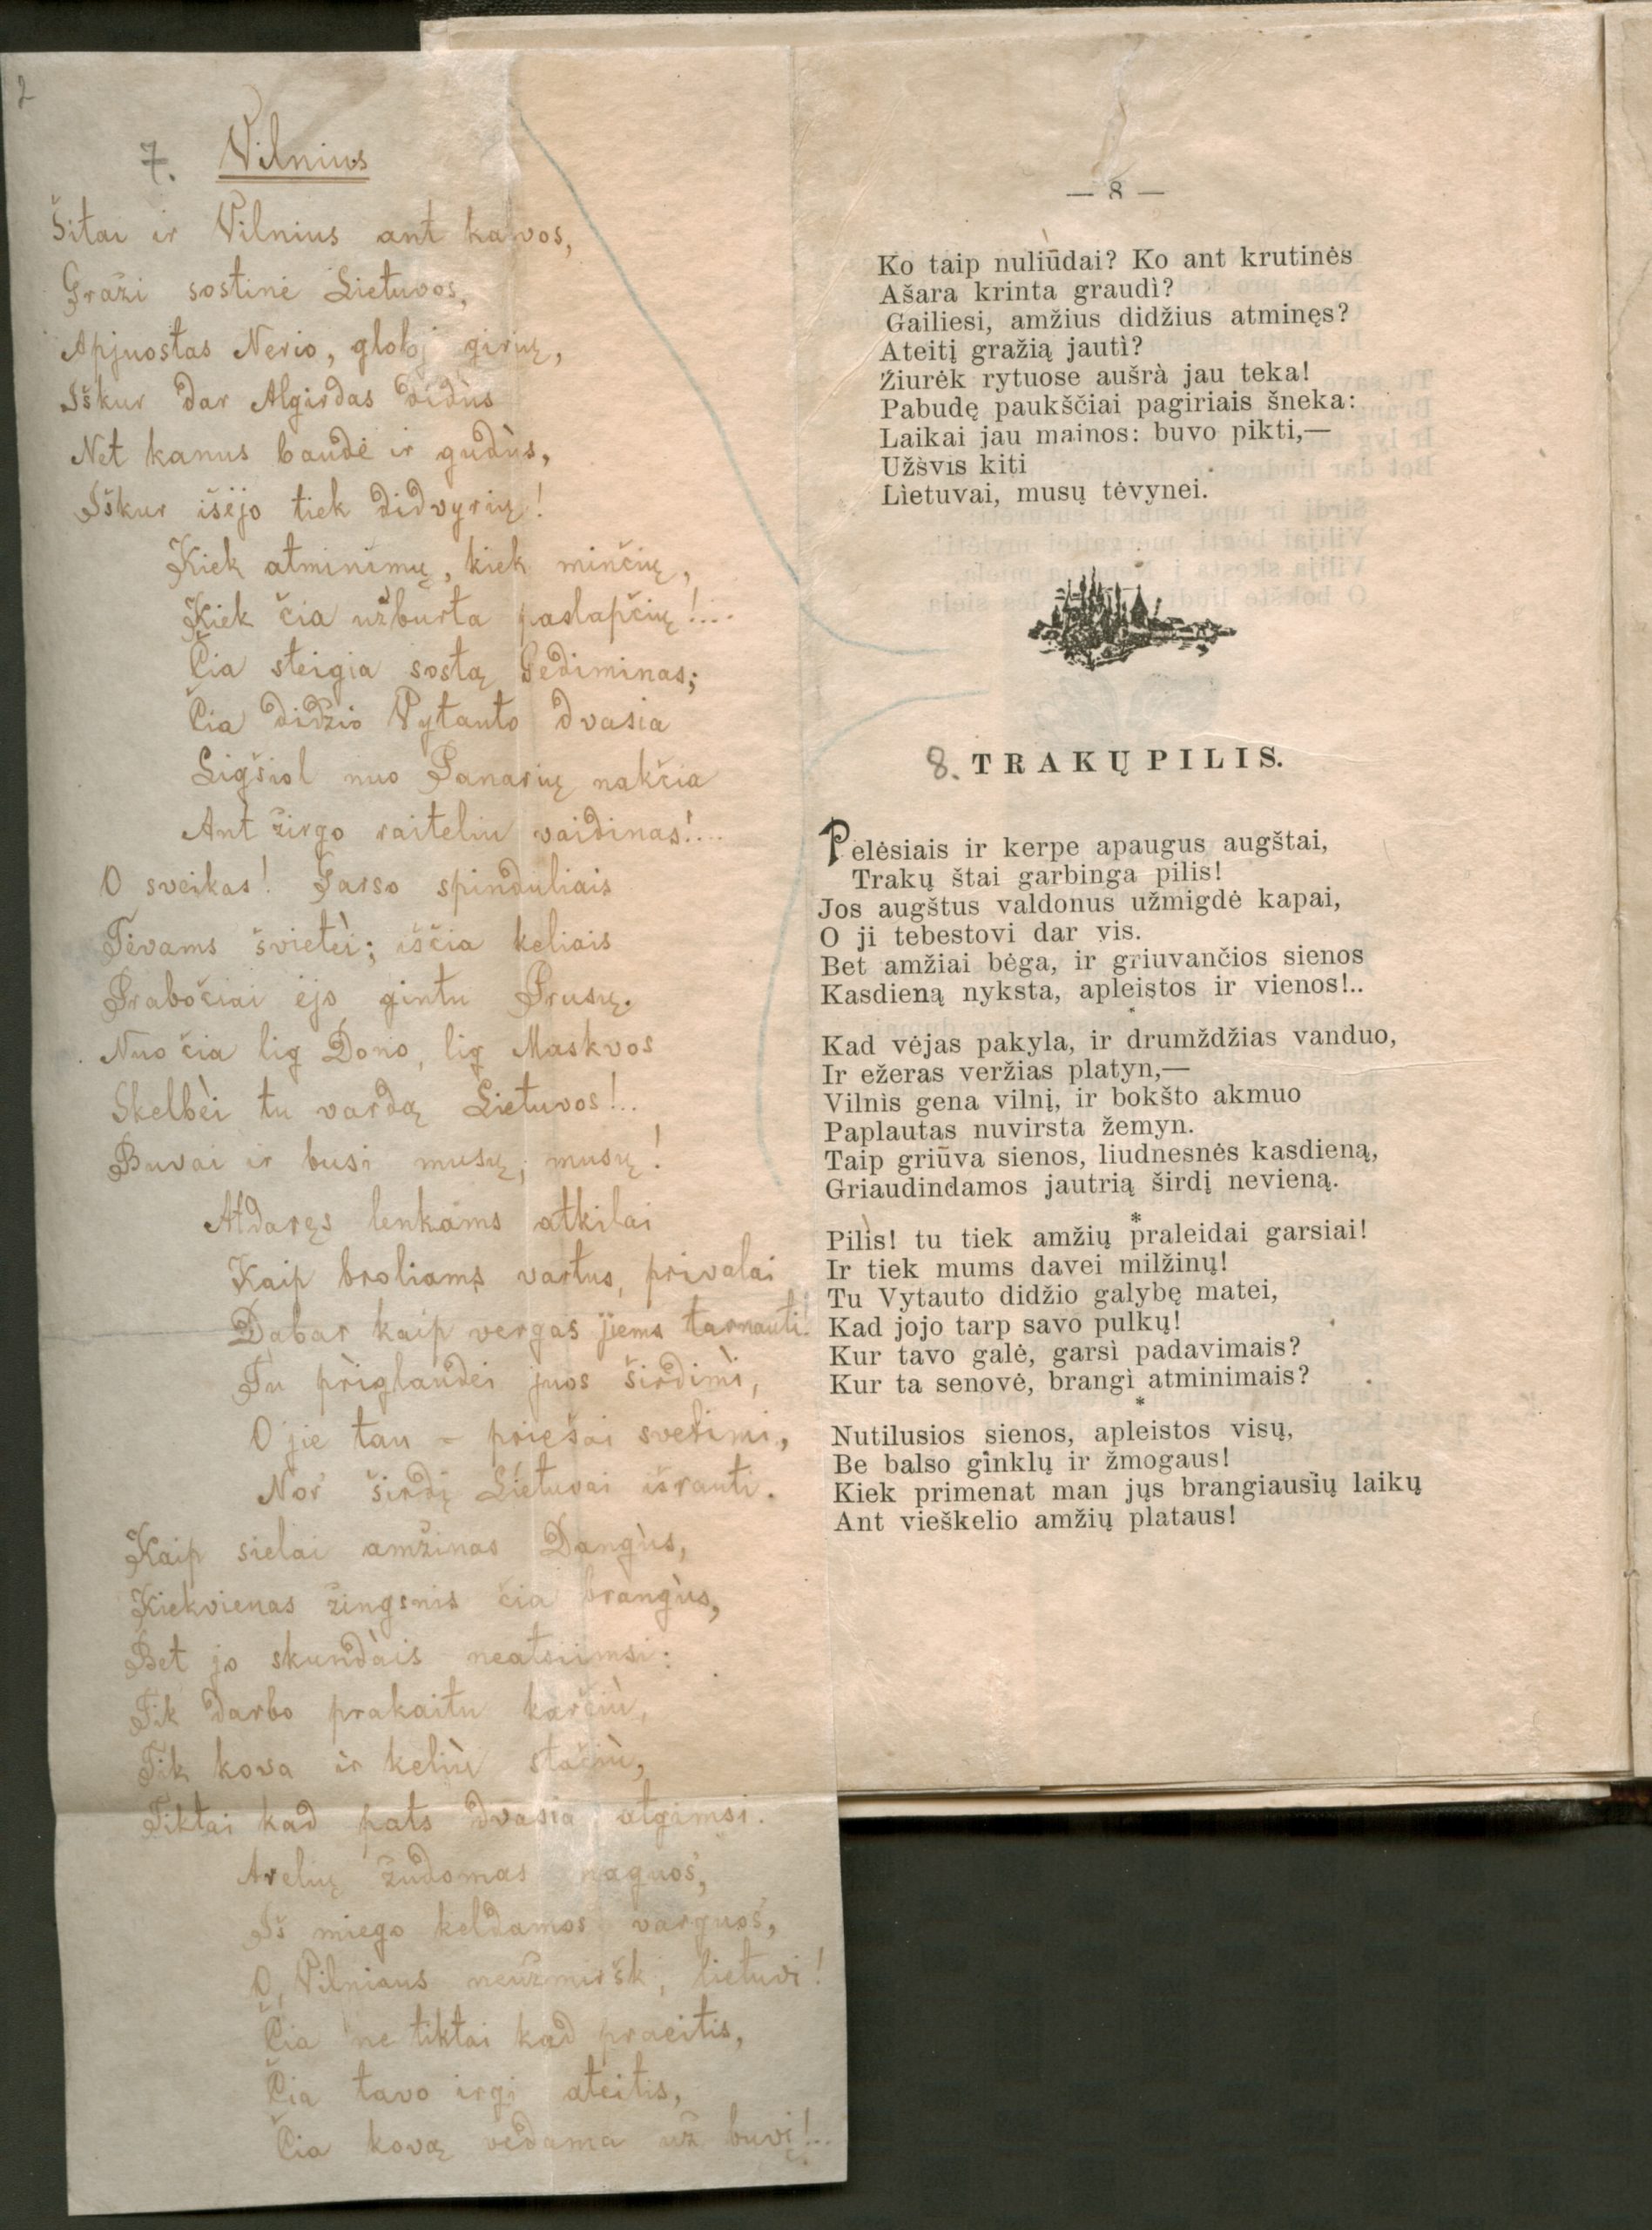 2
7. Vilnius
Šitai ir Vilnius ant kalvos,
Graži sostinė Lietuvos,
Apjuostas Nerio, globoj girių,
Iškur dar Algirdas didùs
Net kanus baudė ir gudùs,
Iškur išėjo tiek didvyrių!
Kiek atminimų, kiek minčių,
Kiek čia užburta paslapčių!...
Čia steigia sostą Gediminas;
Čia didžio Vytauto dvasia
Ligšiol nuo Panarių nakčia
Ant žirgo raiteliu vaidinas!...
O sveikas! Garso spinduliais
Tėvams švietèi; iščia keliais
Prabočiai ėjo gintu Prusų.
Nuo čia lig Dono, lig Maskvos
Skelbèi tu vardą Lietuvos!..
Buvai ir busi musų, musų!
Atdaręs lenkams atkilai
Kaip broliams vartus, privalai
Dabar kaip vergas jiems tarnauti.
Tu prìglaudei juos širdimì,
O jie tau – priešai svetimi,
Nor' širdį Lietuvai išrauti.
Kaip sielai amžinas Dangùs,
Kiekvienas žingsnis čia brangùs,
Bet jo skundàis neatsiimsi:
Tik darbo prakaitu karčiù,
Tik kova ir keliù stačiù,
Tiktai kad pats dvasia atgimsi.
Arelių žudomas naguos',
Iš miego keldamos' varguos',
O, Vilniaus neužmiršk, lietuvi!
Čia ne tiktai kad praeitis,
Čia tavo irgi ateitis,
Čia kovą vedama už buvį!..
— 8 —
Ko taip nuliūdai? Ko ant krutinės
Ašara krinta graudì?
Gailiesi, amžius didžius atminęs?
Ateitį gražią jautì?
Žiurėk rytuose aušrà jau teka!
Pabudę paukščiai pagiriais šneka:
Laikai jau mainos: buvo pikti,—
Užsvis kiti
Lietuvai, musų tėvynei.
8. TRAKŲ PILIS.
Pelėsiais ir kerpe apaugus augštai,
Trakų štai garbinga pilis!
Jos augštus valdonus užmigdė kapai,
O ji tebestovi dar vis.
Bet amžiai bėga, ir griuvančios sienos
Kasdieną nyksta, apleistos ir vienos!..
*
Kad vėjas pakyla, ir drumždžias vanduo,
Ir ežeras veržias platyn,—
Vilnis gena vilnį, ir bokšto akmuo
Paplautas nuvirsta žemyn.
Taip griūva sienos, liudnesnės kasdieną,
Griaudindamos jautrią širdį nevieną.
*
Pilìs! tu tiek amžių praleidai garsiai!
Ir tiek mums davei milžinų!
Tu Vytauto didžio galybę matei,
Kad jojo tarp savo pulkų!
Kur tavo galė, garsì padavimais?
Kur ta senovė, brangì atminimais?
*
Nutilusios sienos, apleistos visų,
Be balso ginklų ir žmogaus!
Kiek primenat man jųs brangiausių laikų
Ant vieškelio amžių plataus!